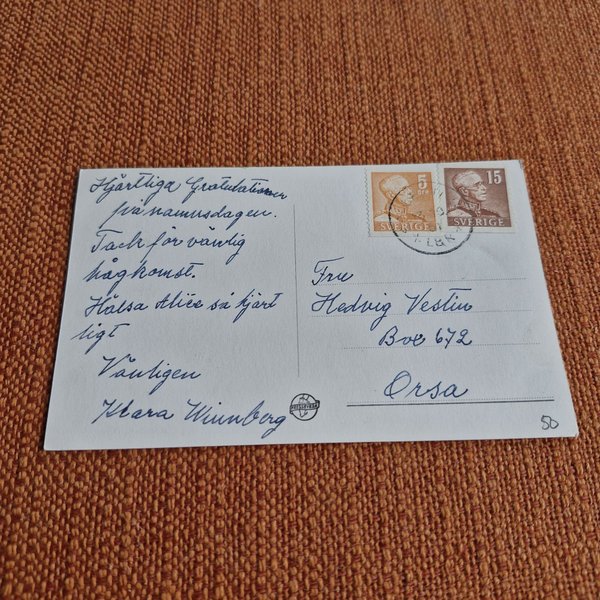 Hjärtliga Gratulationer
på namnsdagen.
Tack för vänlig
hågkomst.
Hälsa Alice så hjärt
ligt
Vänligen
Klara Winnberg
5
öre
SVERIGE
15
SVERIGE
Fru
Hedvig Vestin
Box 672
Orsa
50